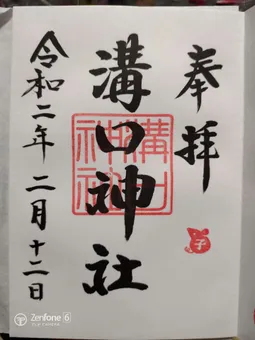 奉拝
溝口神社
溝口
神社
子
令和二年二月十二日
Zenfone 6